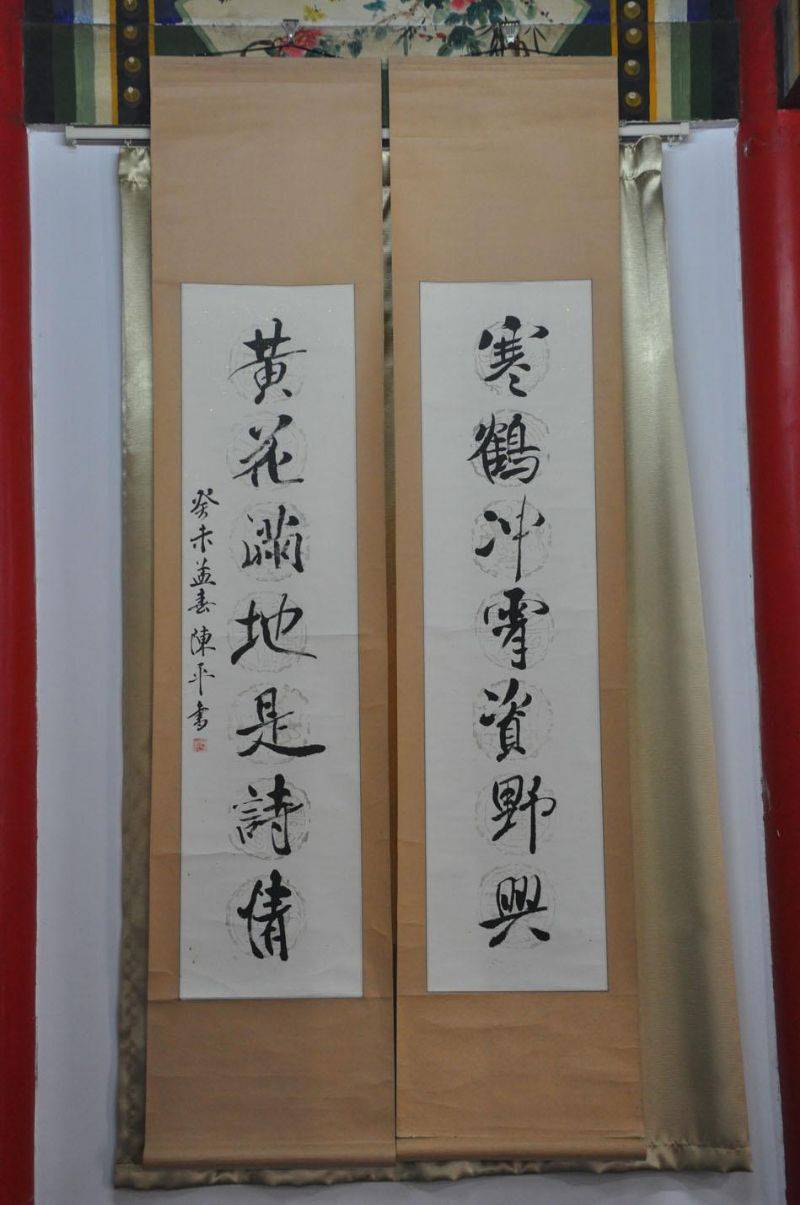 寒鶴冲霄資野興
黄花滿地是詩情
癸未孟春陳平書